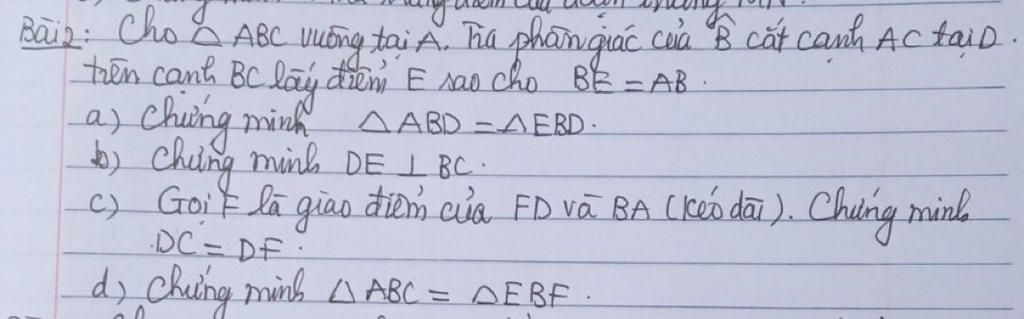 Bài 2: Cho △ ABC vuông tại A. Tia phân giác của B̂ cắt cạnh AC tại D.
trên cạnh BC lấy điểm E sao cho BE = AB.
a) Chứng minh △ ABD = △ EBD.
b) Chứng minh DE ⊥ BC.
c) Gọi F là giao điểm của FD và BA (kéo dài). Chứng minh
DC = DF.
d) Chứng minh △ ABC = △ EBF.